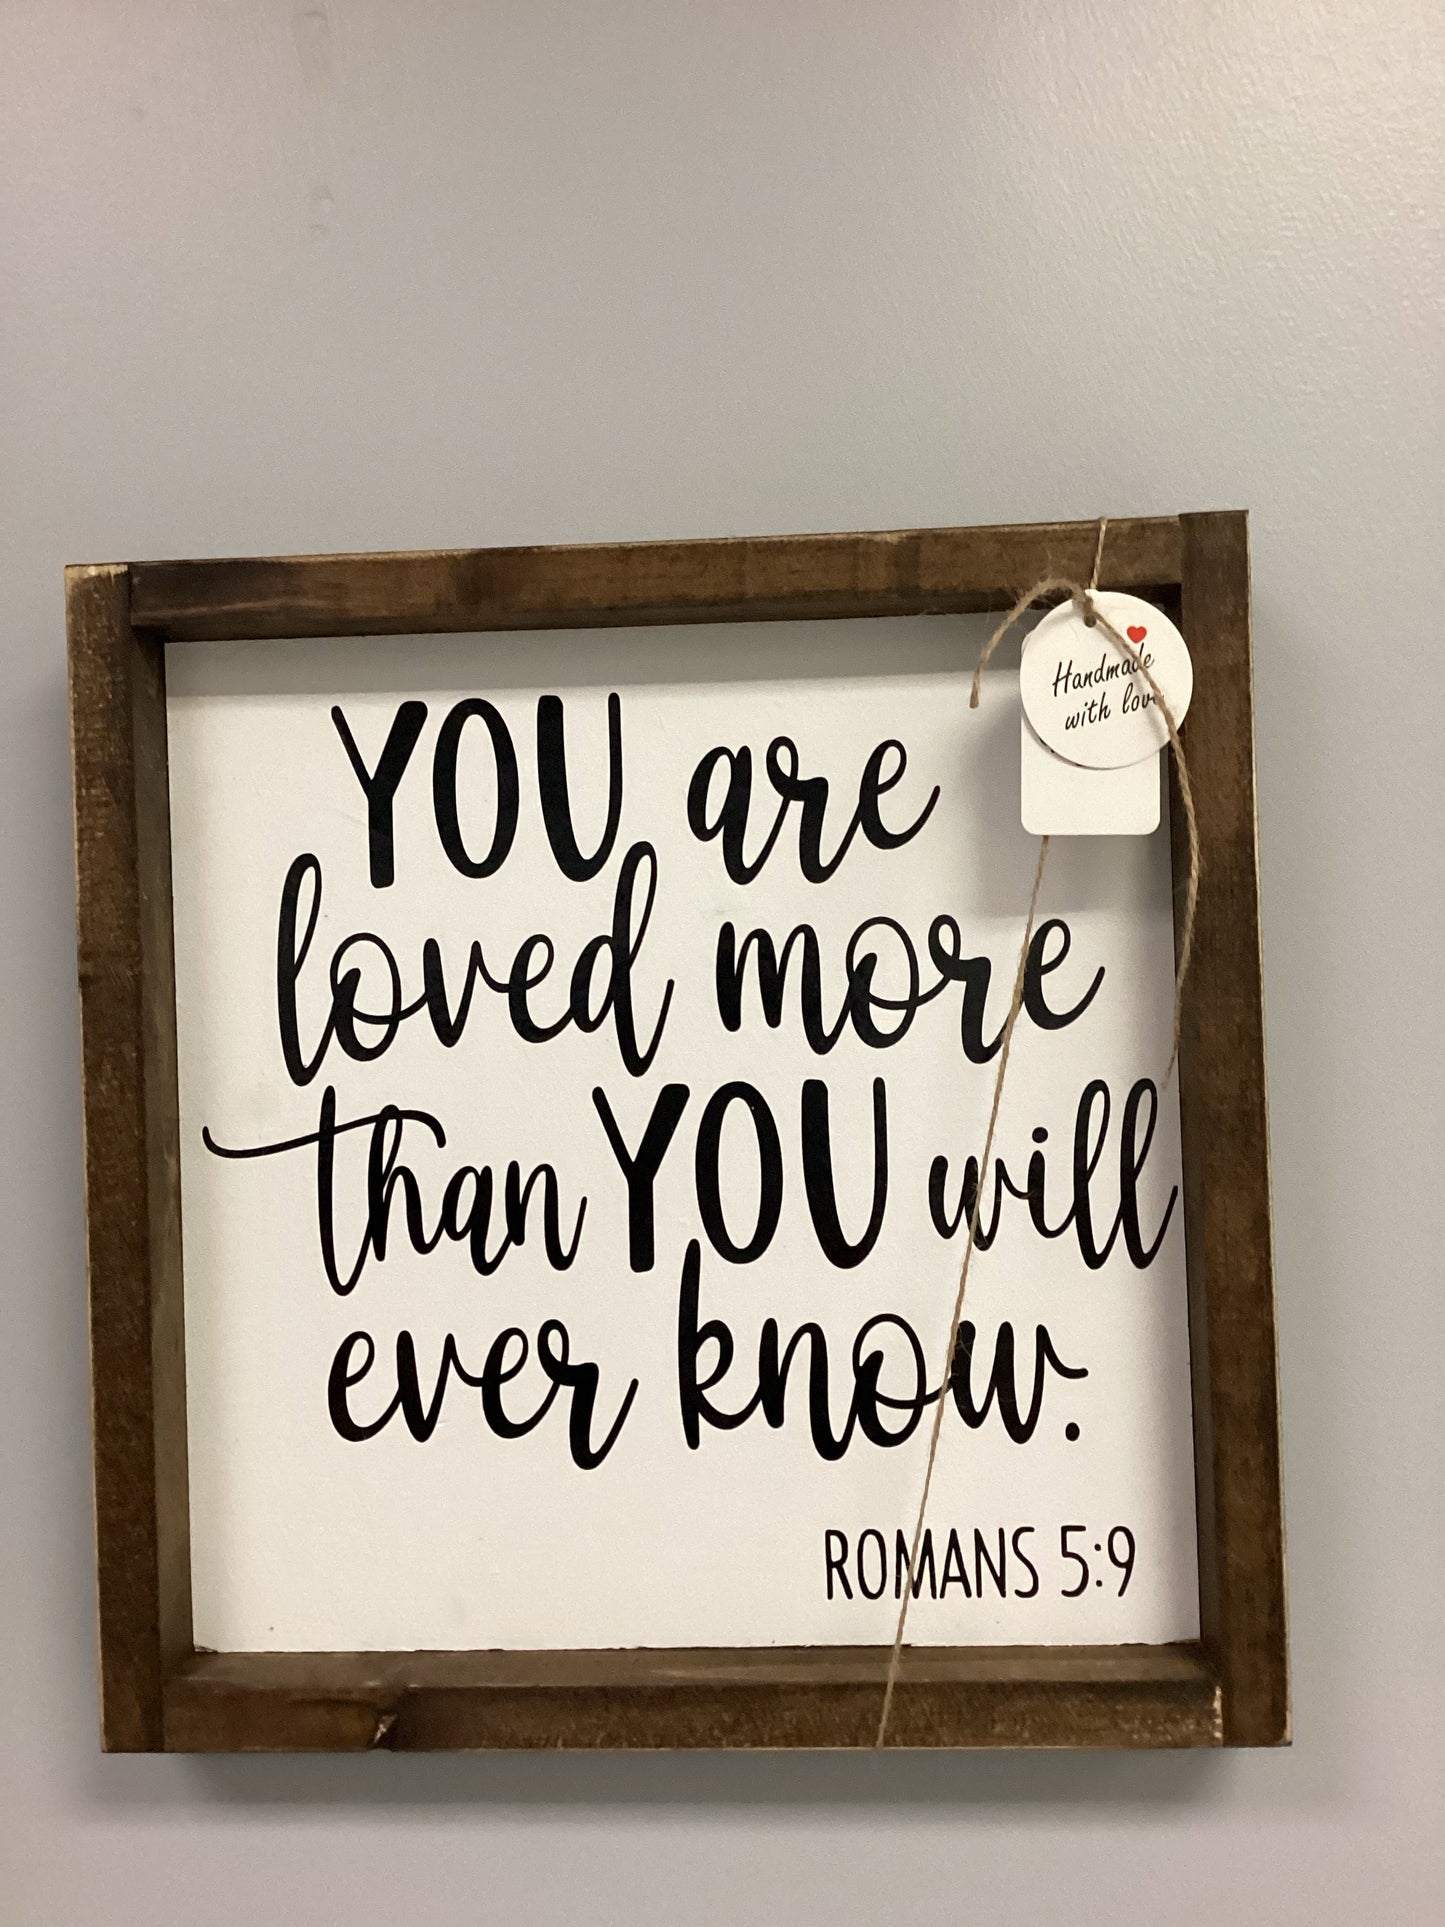 Handmade
with love
YOU are
loved more
than YOU will
ever know.
ROMANS 5:9